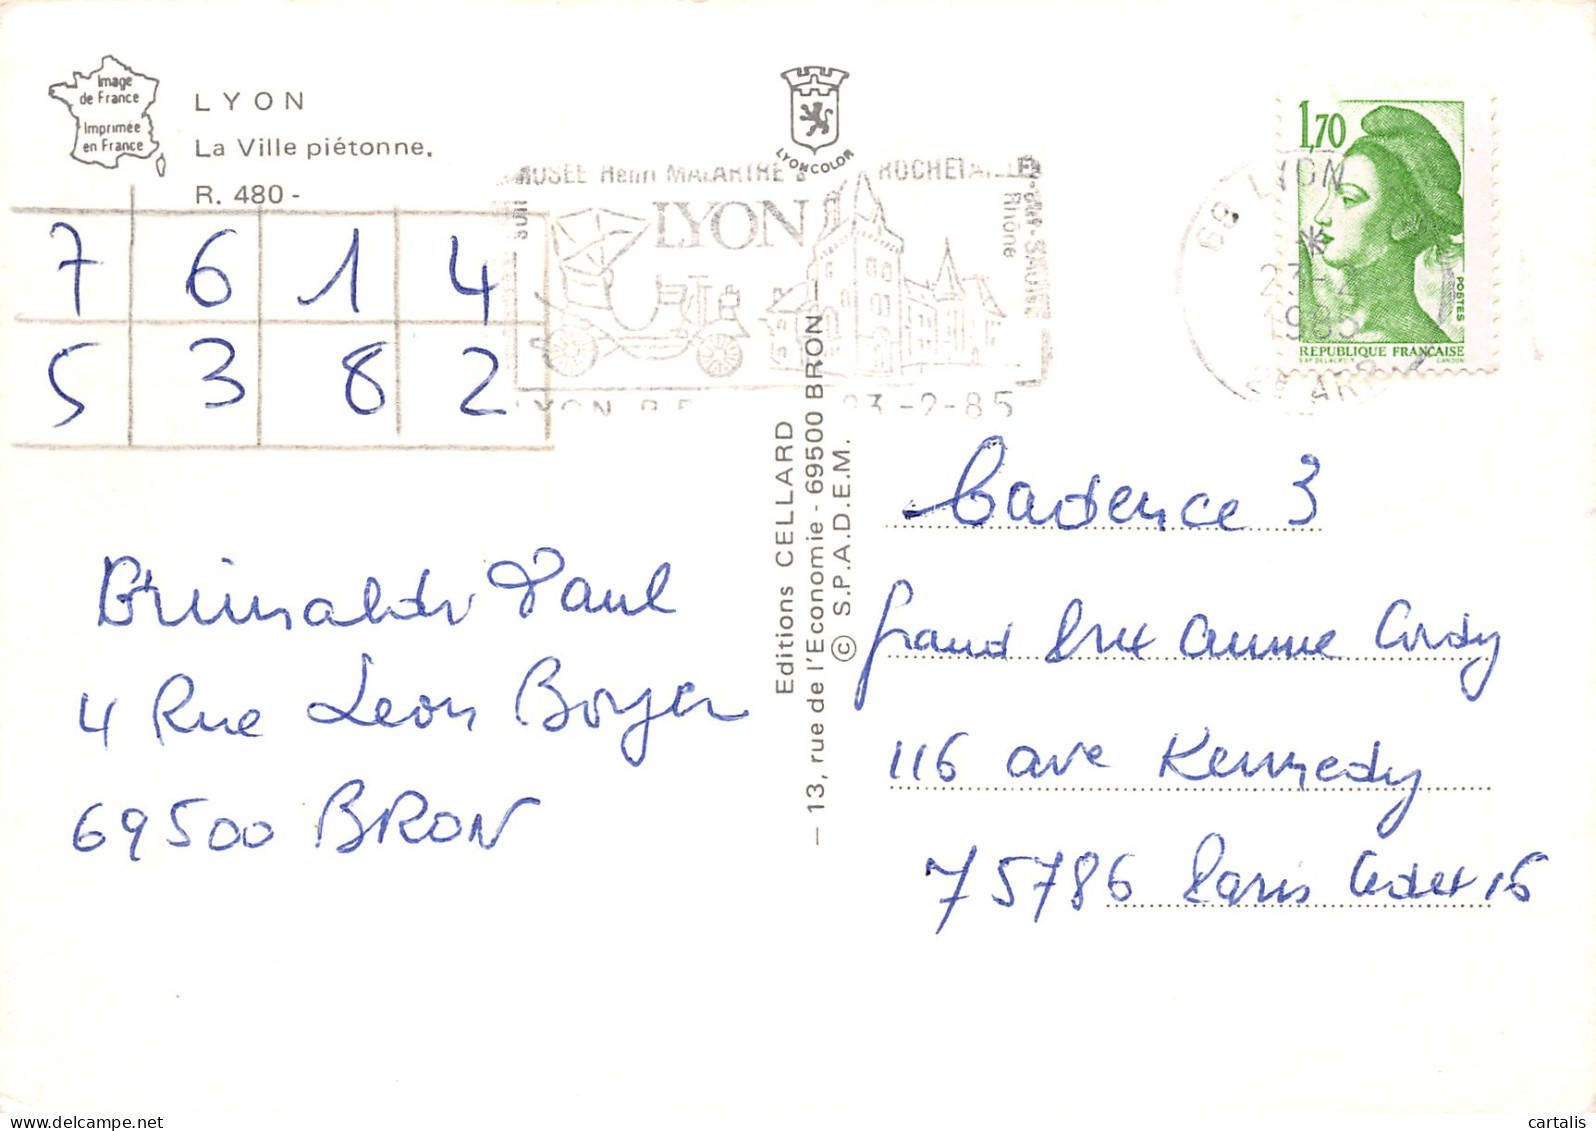 Image
de France
Imprimée
en France
LYON
La Ville piétonne.
R. 480 -
LYONCOLOR
MUSÉE Henri MALARTRE
ROCHETAILLÉE
SUR - SAONE
Rhône
LYON
23-2-85
69 LYON
23-2
1985
1,70
POSTES
RÉPUBLIQUE FRANÇAISE
7 6 1 4
5 3 8 2
Grimaldi Paul
4 Rue Leon Boyer
69500 BRON
Editions CELLARD
— 13, rue de l'Economie - 69500 BRON —
© S.P.A.D.E.M.
Cadence 3
grand Prix Annie Cordy
116 ave Kennedy
75786 Paris Cedex 16
cartalis
delcampe.net